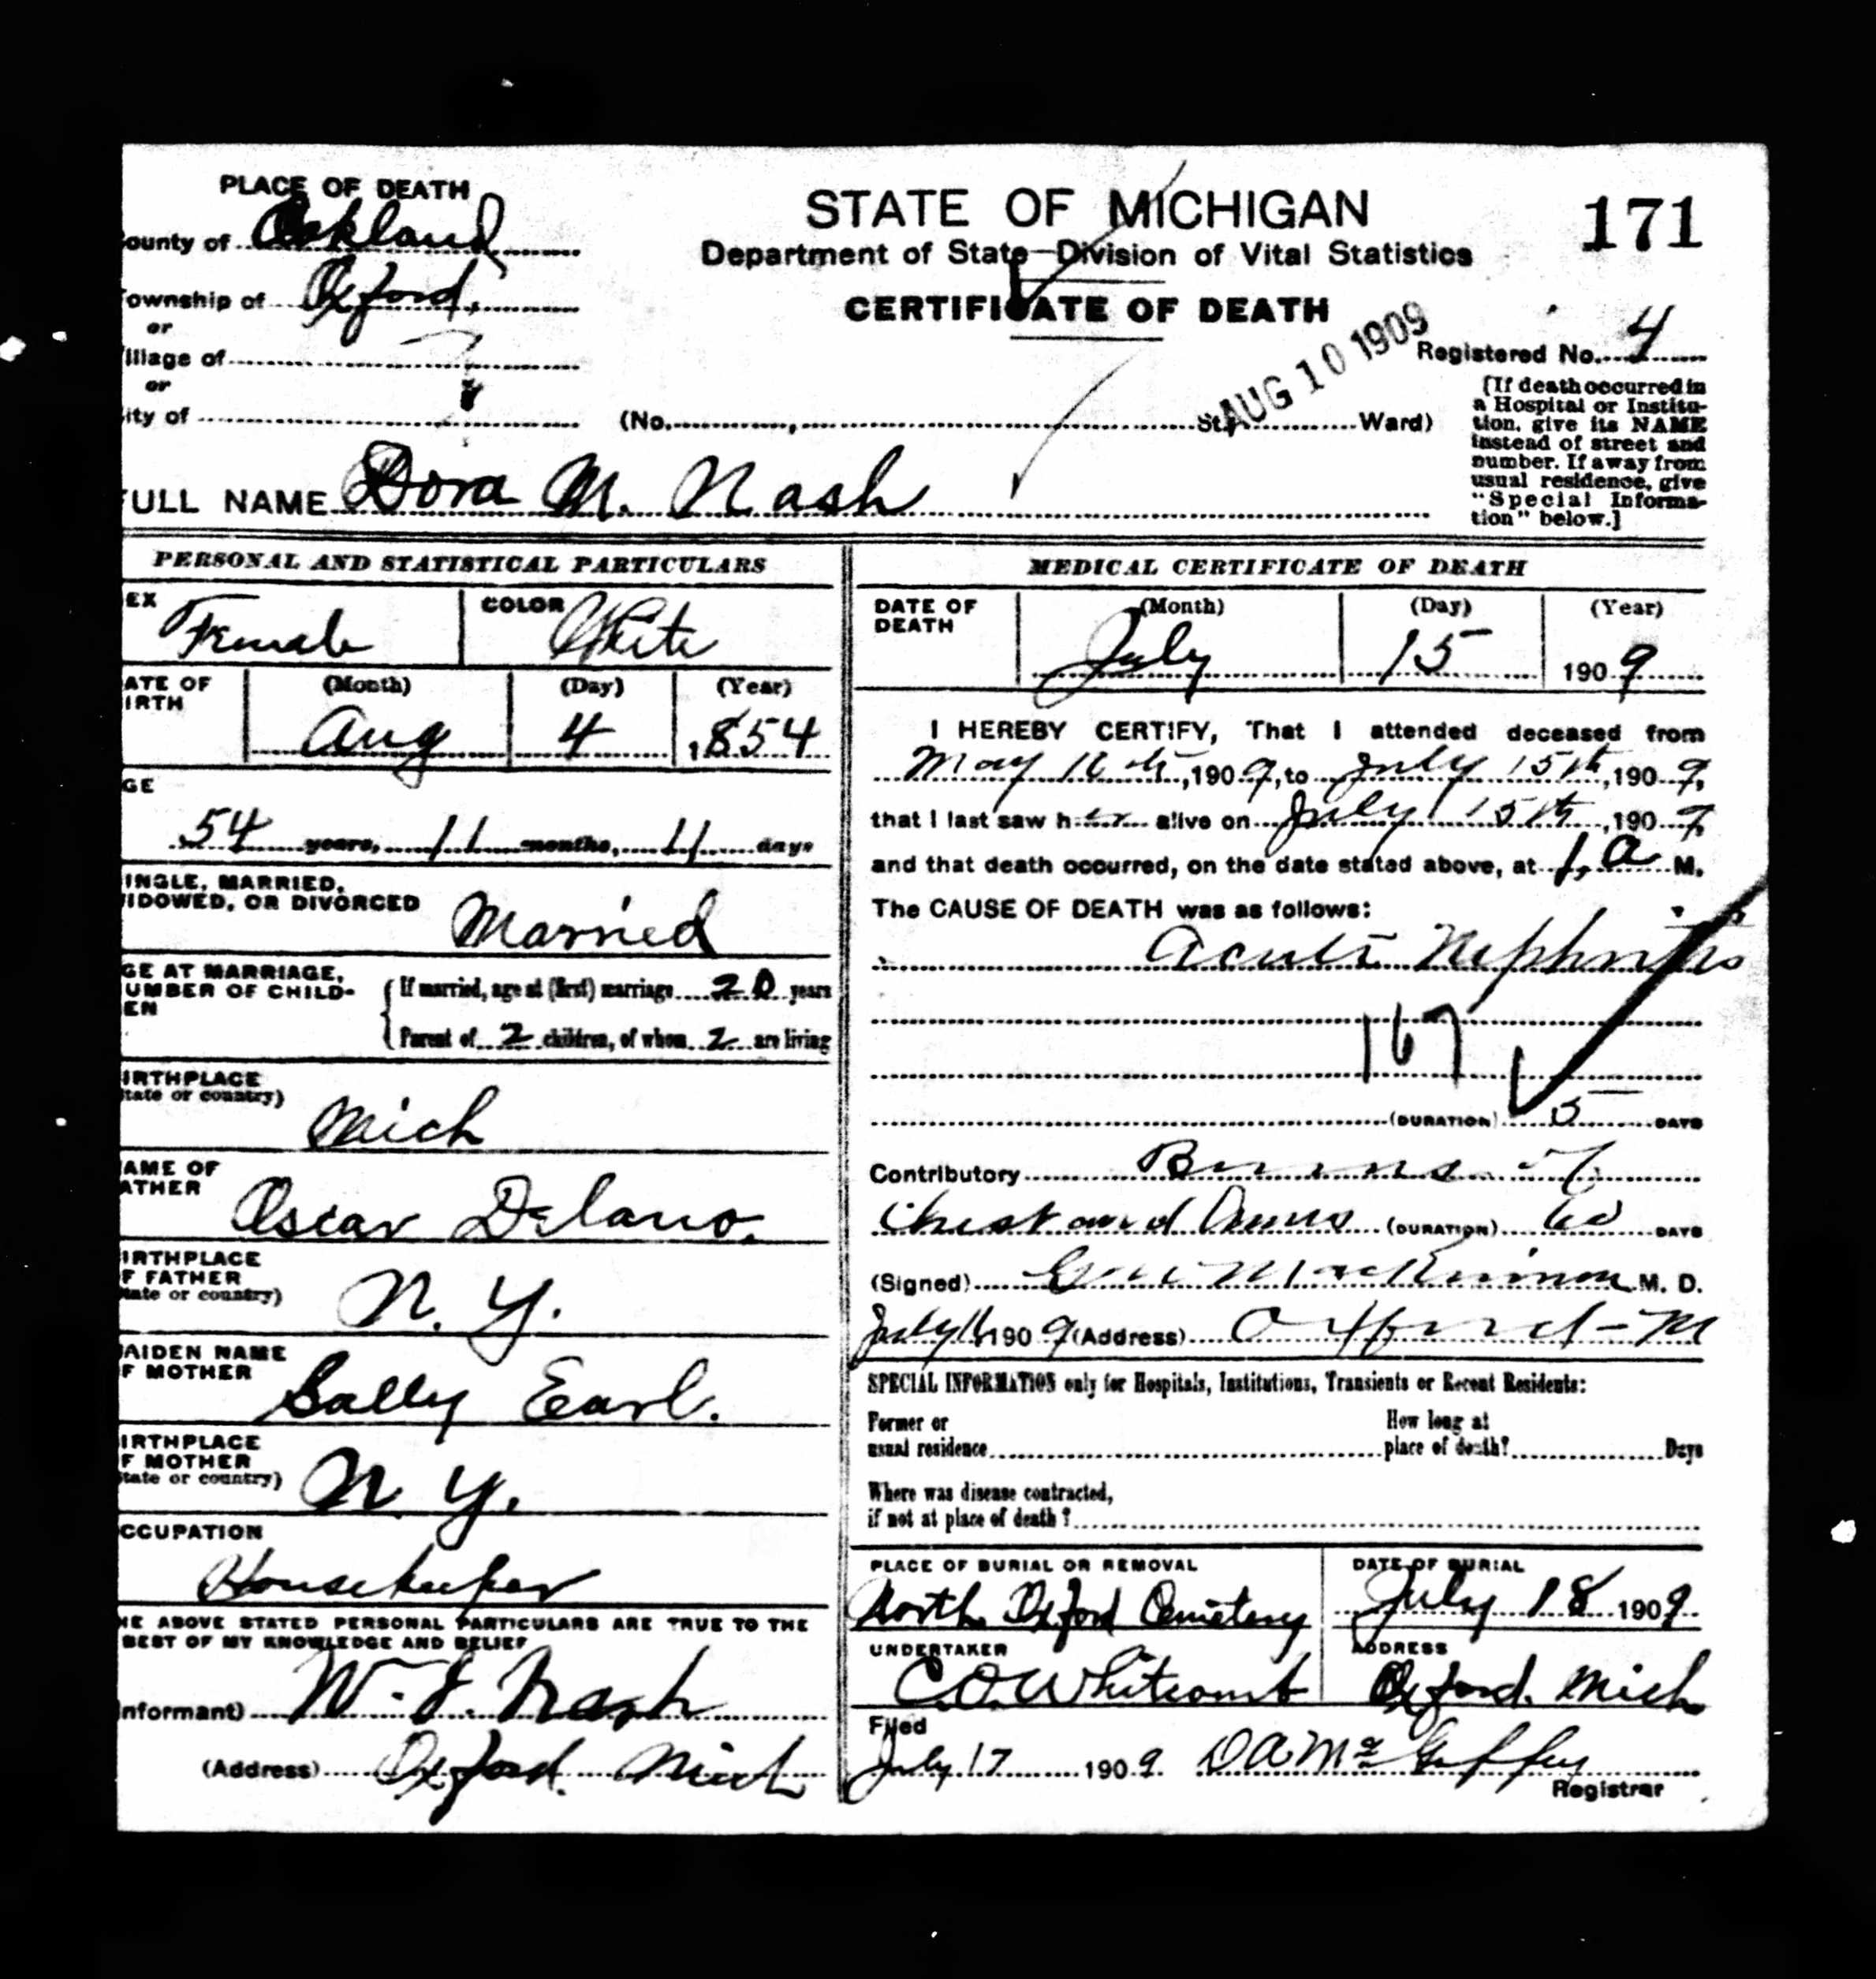 PLACE OF DEATH
ounty of Oakland
ownship of Oxford,
or
illage of
or
ity of
STATE OF MICHIGAN
Department of State—Division of Vital Statistics
CERTIFICATE OF DEATH
171
AUG 10 1909
Registered No. 4
(No. , St. Ward)
[If death occurred in
a Hospital or Institu-
tion, give its NAME
instead of street and
number. If away from
usual residence, give
"Special Informa-
tion" below.]
ULL NAME Dora M. Nash
PERSONAL AND STATISTICAL PARTICULARS
EX Female
COLOR White
ATE OF
IRTH
(Month) (Day) (Year)
Aug 4 1854
GE
54 years, 11 months, 11 days
INGLE, MARRIED,
IDOWED, OR DIVORCED Married
GE AT MARRIAGE,
UMBER OF CHILD-
EN
If married, age at (first) marriage 20 years
Parent of 2 children, of whom 2 are living
IRTHPLACE
tate or country)
Mich
AME OF
ATHER
Oscar Delano.
IRTHPLACE
F FATHER
tate or country)
N. Y.
AIDEN NAME
F MOTHER
Sally Earl.
IRTHPLACE
F MOTHER
tate or country)
N. Y.
CCUPATION
Housekeeper
HE ABOVE STATED PERSONAL PARTICULARS ARE TRUE TO THE
BEST OF MY KNOWLEDGE AND BELIEF
nformant) W. J. Nash
(Address) Oxford. Mich
MEDICAL CERTIFICATE OF DEATH
DATE OF
DEATH
(Month) (Day) (Year)
July 15 1909
I HEREBY CERTIFY, That I attended deceased from
May 16th, 1909, to July 15th, 1909,
that I last saw her alive on July 15th, 1909,
and that death occurred, on the date stated above, at 1, a M.
The CAUSE OF DEATH was as follows:
Acute Nephritis
167
(DURATION) 5 DAYS
Contributory Burns of
Chest and Arms (DURATION) 60 DAYS
(Signed) MacKinnon M. D.
July 16 1909 (Address) Oxford - M
SPECIAL INFORMATION only for Hospitals, Institutions, Transients or Recent Residents:
Former or
usual residence
How long at
place of death? Days
Where was disease contracted,
if not at place of death?
PLACE OF BURIAL OR REMOVAL
North Oxford Cemetery
DATE OF BURIAL
July 18 1909
UNDERTAKER
C.O. Whitcomb
ADDRESS
Oxford. Mich
Filed
July 17 1909. D A Mc Guffey
Registrar